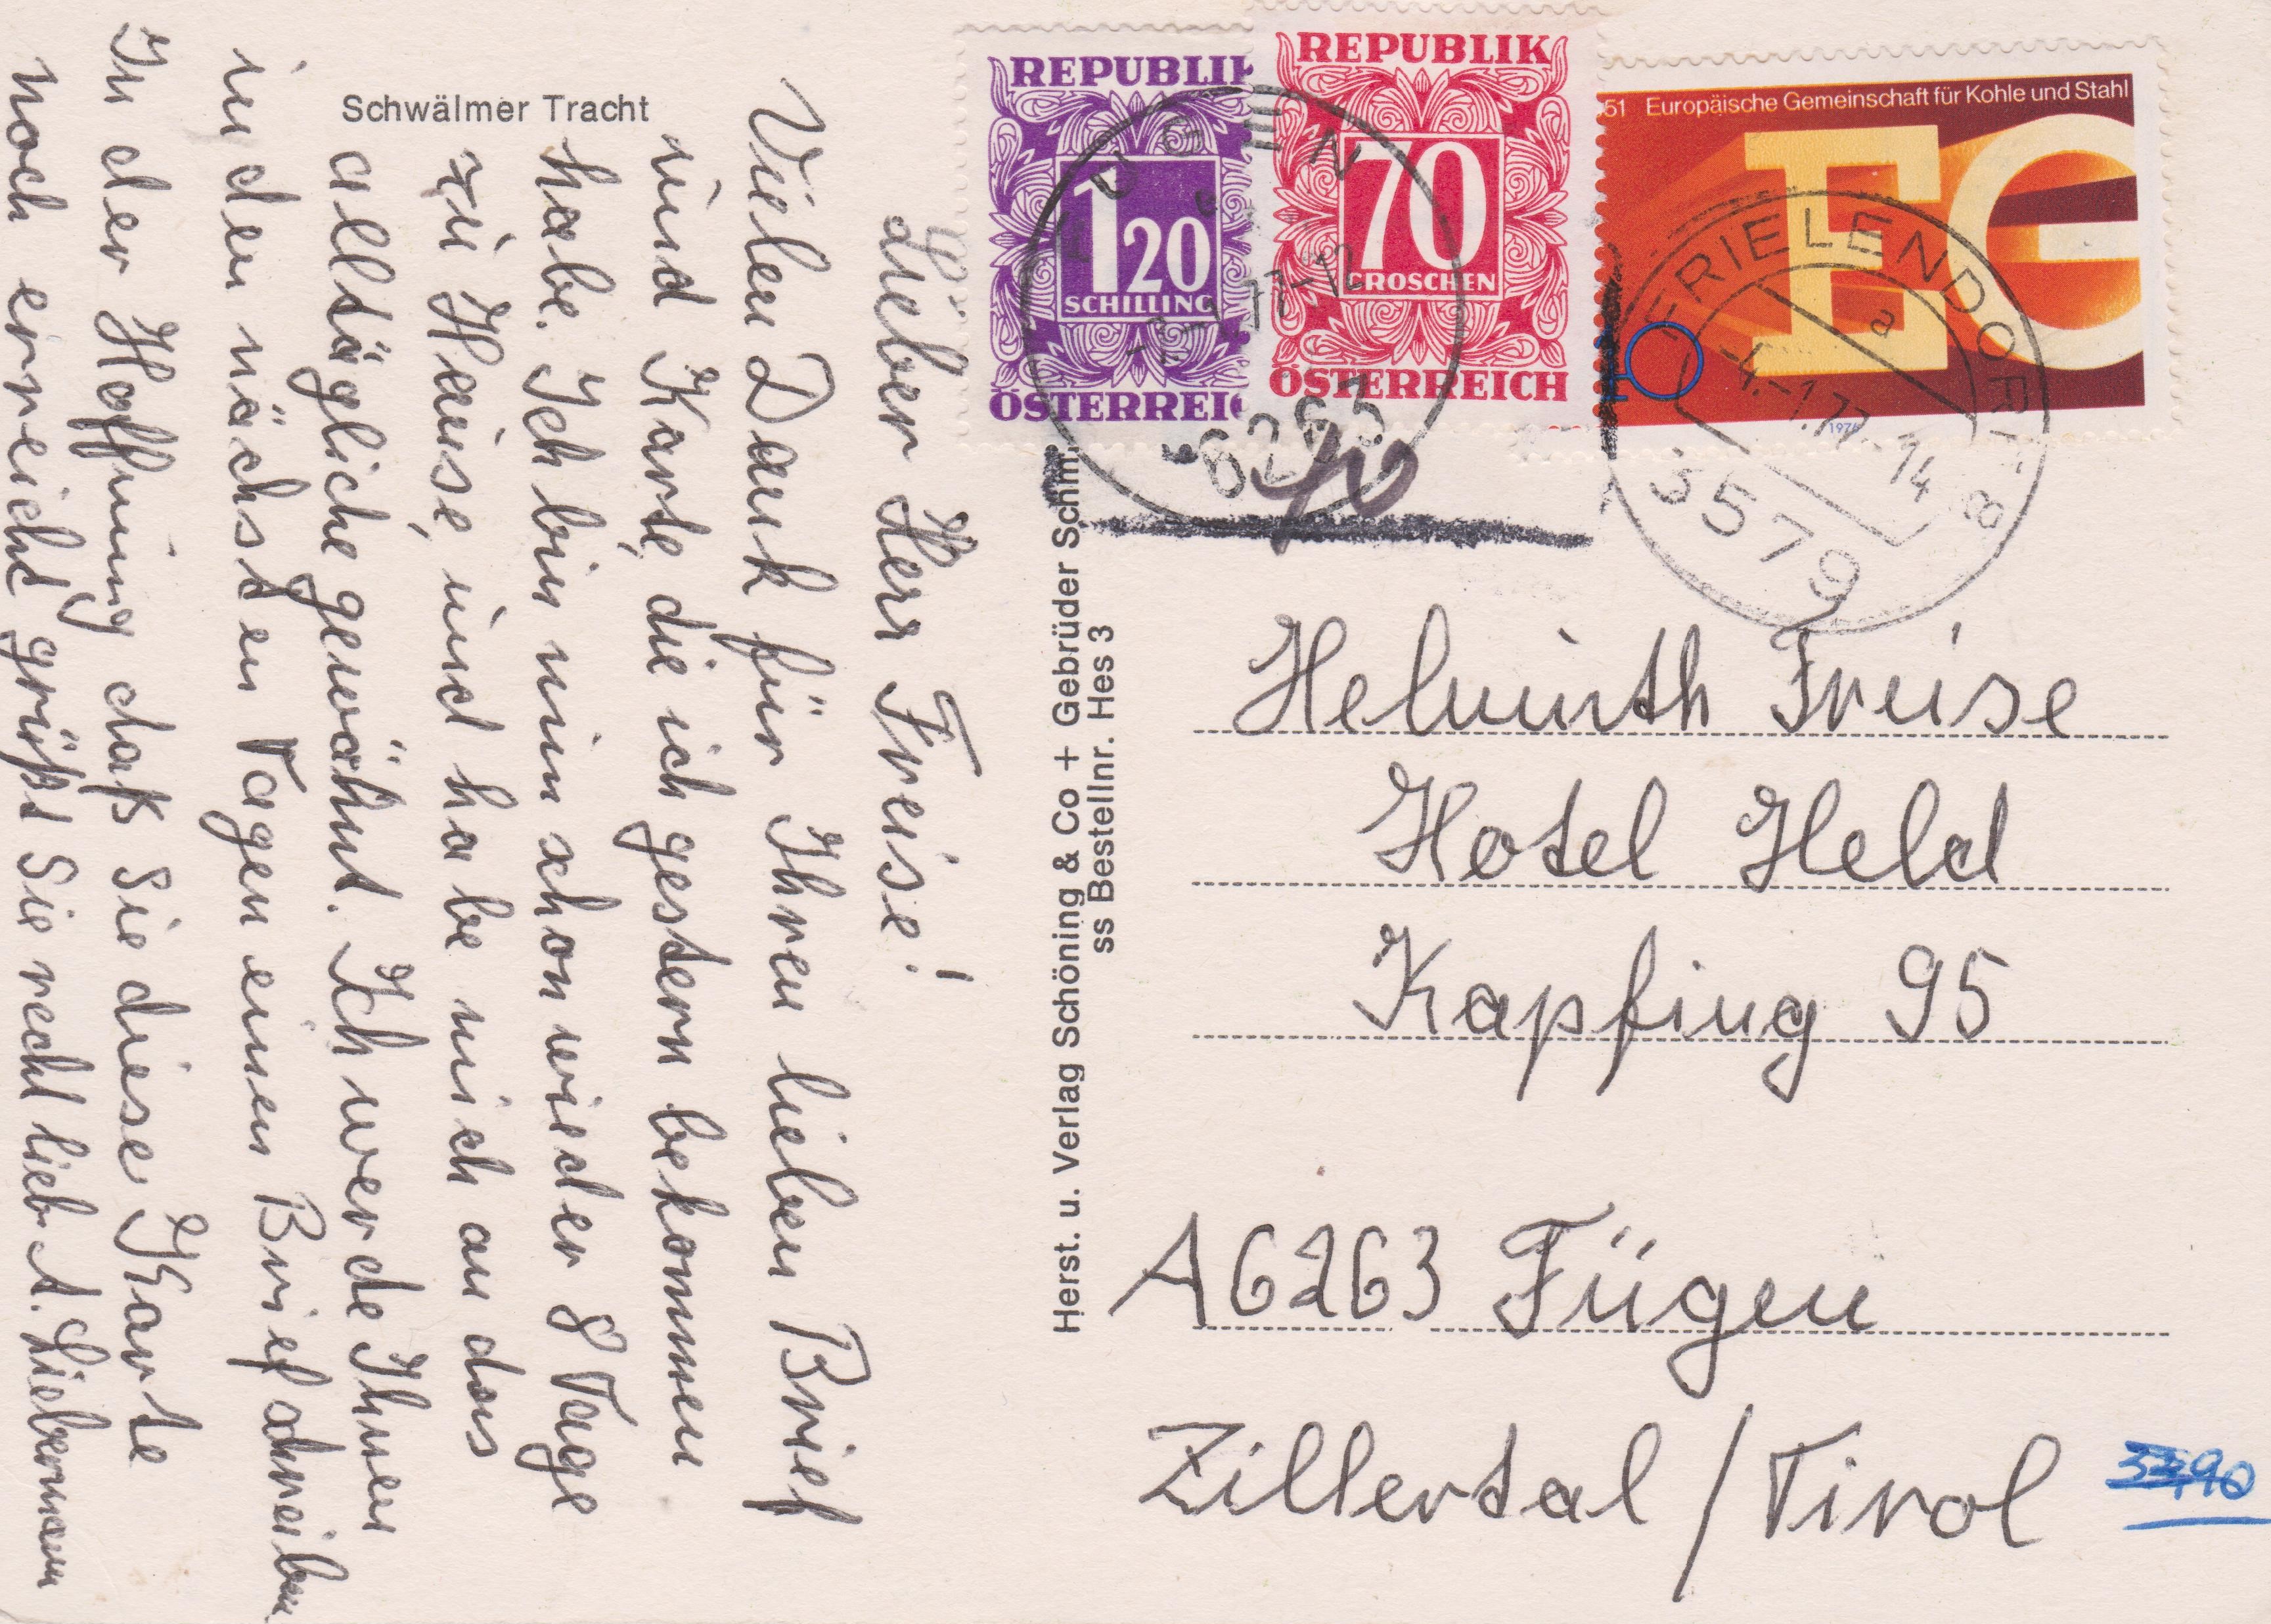 Schwälmer Tracht
Lieber Herr Freise!
Vielen Dank für Ihren lieben Brief
und Karte, die ich gestern bekommen
habe. Ich bin nun schon wieder 8 Tage
zu Hause, und habe mich an das
alltägliche gewöhnt. Ich werde Ihnen
in den nächsten Tagen einen Brief schreiben
In der Hoffnung daß Sie diese Karte
noch erreicht grüßt Sie recht lieb A. Liebermann
Herst. u. Verlag Schöning & Co + Gebrüder Schm.
ss Bestellnr. Hes 3
REPUBLIK
1 20
SCHILLING
ÖSTERREIC
REPUBLIK
70
GROSCHEN
ÖSTERREICH
51 Europäische Gemeinschaft für Kohle und Stahl
EG
40
1976
FÜGEN
77-12
6263
FRIELENDORF
a
-4.-1.77-14
8
3579
Helmuth Freise
Hotel Held
Kapfing 95
A 6263 Fügen
Zillertal / Tirol